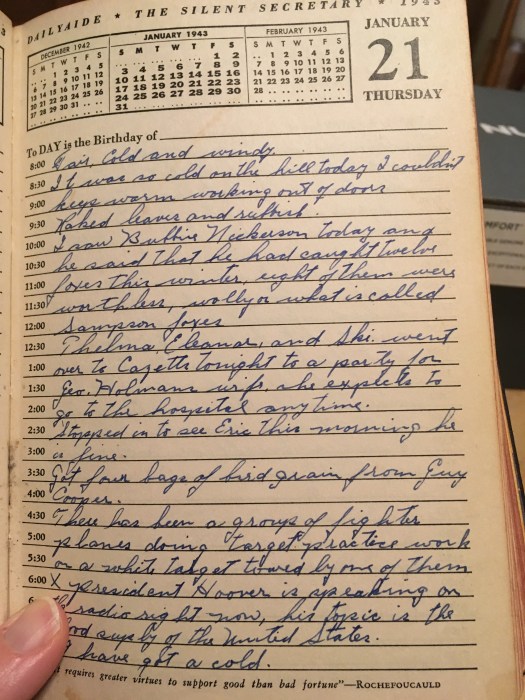 DAILYAIDE ★ THE SILENT SECRETARY ★ 1943
DECEMBER 1942
S M T W T F S
. . 1 2 3 4 5
6 7 8 9 10 11 12
13 14 15 16 17 18 19
20 21 22 23 24 25 26
27 28 29 30 31 . .
JANUARY 1943
S M T W T F S
1 2
3 4 5 6 7 8 9
10 11 12 13 14 15 16
17 18 19 20 21 22 23
24 25 26 27 28 29 30
31
FEBRUARY 1943
S M T W T F S
. . 1 2 3 4 5 6
7 8 9 10 11 12 13
14 15 16 17 18 19 20
21 22 23 24 25 26 27
28
JANUARY
21
THURSDAY
To DAY is the Birthday of
8:00 Fair, Cold and windy.
8:30 It was so cold on the hill today I couldn't
9:00 keep warm working out of doors
9:30 Raked leaves and rubbish.
10:00 I saw Nickerson today and
10:30 he said that he had caught twelve
11:00 foxes this winter, eight of them were
11:30 worthless, wolly or what is called
12:00 Sampson foxes
12:30 Thelma, Eleanor, and Ski. went
1:00 over to tonight to a party for
1:30 Geo. Holmans wife, she expects to
2:00 go to the hospital anytime.
2:30 Stopped in to see Eric this morning he
3:00 is fine.
3:30 Got four bags of bird grain from Guy
4:00 Cooper.
4:30 There has been a groups of fighter
5:00 planes doing target practice work
5:30 on a white target towed by one of them
6:00 X president Hoover is speaking on
the radio right now, his topic is the
food supply of the United States.
I have got a cold.
requires greater virtues to support good than bad fortune"—ROCHEFOUCAULD